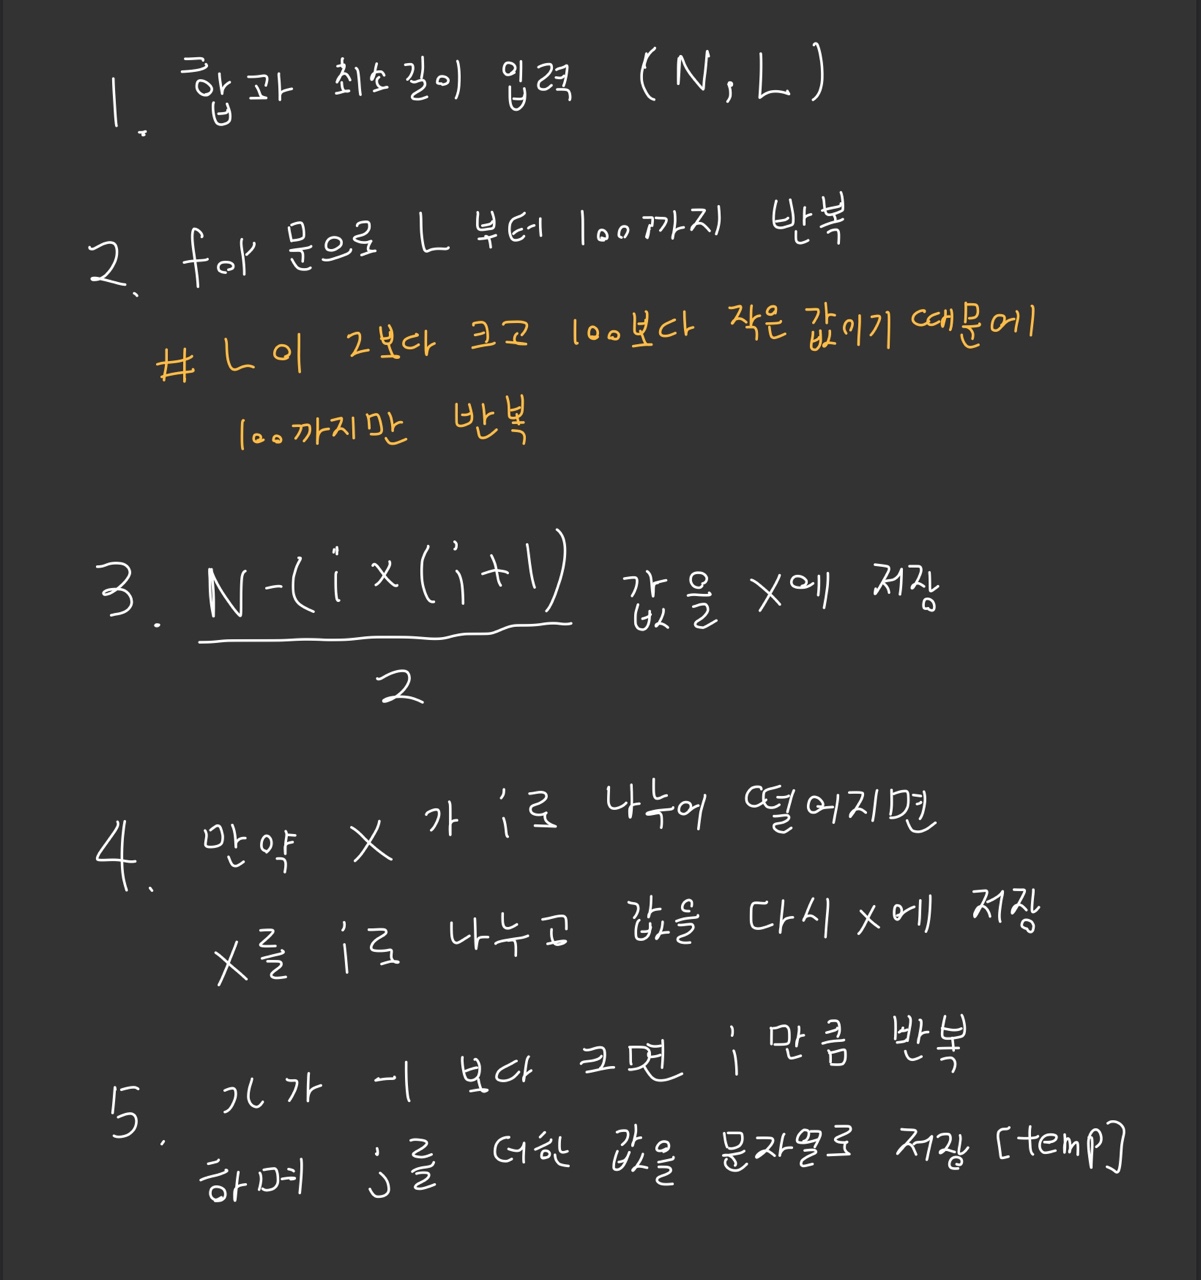 1. 합과 최소길이 입력 (N, L)
2. for 문으로 L 부터 100까지 반복
# L이 2보다 크고 100보다 작은 값이기 때문에
100까지만 반복
3. N-(i×(i+1)
2
값을 X에 저장
4. 만약 X가 i로 나누어 떨어지면
X를 i로 나누고 값을 다시 X에 저장
5. x가 -1 보다 크면 i만큼 반복
하며 j를 더한 값을 문자열로 저장 [temp]